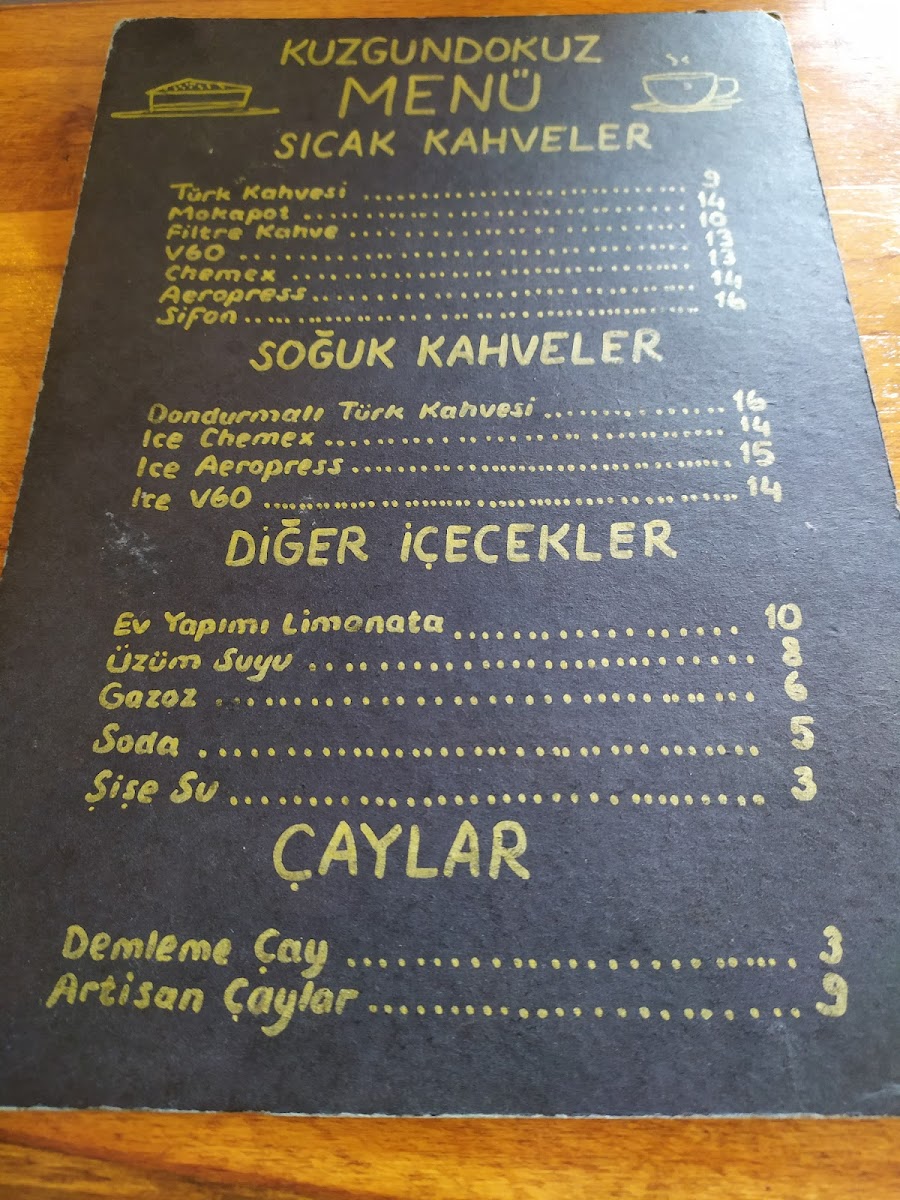 KUZGUNDOKUZ
MENÜ
SICAK KAHVELER
Türk Kahvesi ........................ 9
Mokapot ........................ 14
Filtre Kahve ........................ 10
V60 ........................ 13
Chemex ........................ 13
Aeropress ........................ 14
Sifon ........................ 16
SOĞUK KAHVELER
Dondurmalı Türk Kahvesi ........................ 16
Ice Chemex ........................ 14
Ice Aeropress ........................ 15
Ice V60 ........................ 14
DİĞER İÇECEKLER
Ev Yapımı Limonata ........................ 10
Üzüm Suyu ........................ 8
Gazoz ........................ 6
Soda ........................ 5
Şişe Su ........................ 3
ÇAYLAR
Demleme Çay ........................ 3
Artisan Çaylar ........................ 9